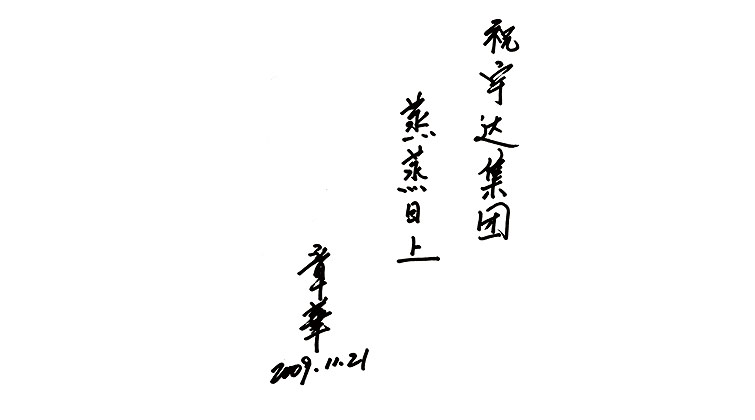 祝宇达集团
蒸蒸日上
章華
2009.11.21